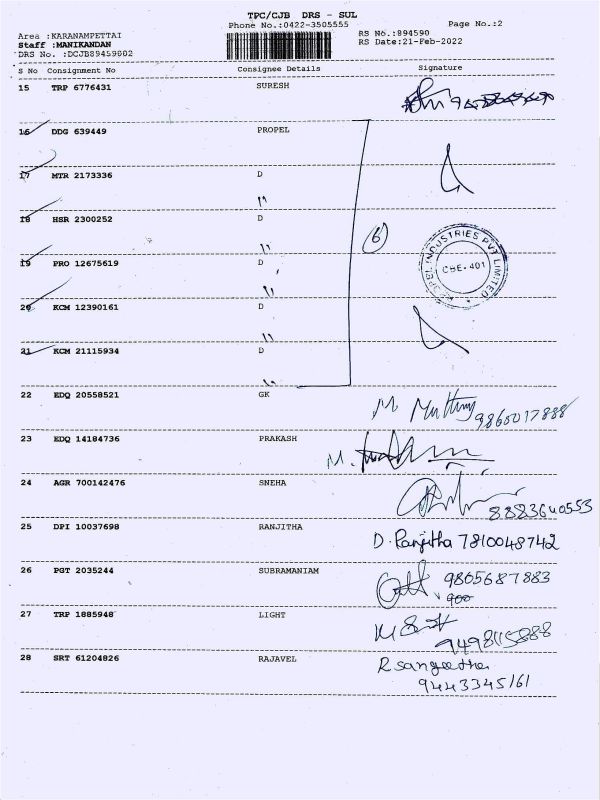 TPC/CJB DRS - SUL
Phone No.:0422-3505555
Page No.:2
Area :KARANAMPETTAI
RS No.:894590
Staff :MANIKANDAN
RS Date:21-Feb-2022
DRS No. :DCJB89459002
S No Consignment No Consignee Details Signature
15 TRP 6776431 SURESH
16 DDG 639449 PROPEL
17 MTR 2173336 D
18 HSR 2300252 D
6
19 PRO 12675619 D
INDUSTRIES PVT LIMITED
CBE-401
20 KCM 12390161 D
21 KCM 21115934 D
22 EDQ 20558521 GK
9860017888
23 EDQ 14184736 PRAKASH
24 AGR 700142476 SNEHA
8883640553
25 DPI 10037698 RANJITHA
D. Ranjitha 7810048742
26 PGT 2035244 SUBRAMANIAM
9805687883
900
27 TRP 1885948 LIGHT
28 SRT 61204826 RAJAVEL
R sangeetha
9443345161